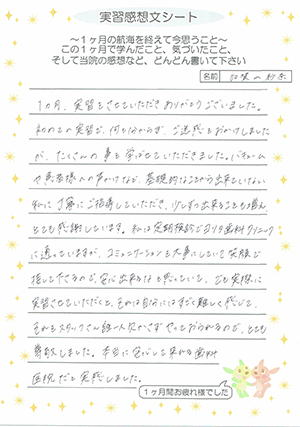 実習感想文シート
～1ヶ月の航海を終えて今思うこと～
この1ヶ月で学んだこと、気づいたこと、
そして当院の感想など、どんどん書いて下さい
名前
1カ月、実習をさせていただきありがとうございました。
初めての実習で、何も分からず、ご迷惑をおかけしました
が、たくさんの事を学ばせていただきました。バキューム
や患者様への声かけなど、基礎的なことから出来ていない
私に丁寧にご指導していただき、少しずつ出来ることも増え
とても感謝しています。私は定期検診で 歯科クリニック
に通っていますが、コミュニケーションを大事にしていて笑顔で
接して下さるので、安心出来るなと思っていて、でも実際に
実習させていただくと、それは自分にはすごく難しく感じて、
それをスタッフさん 一人欠かさずやっておられるので、とても
尊敬しました。本当に安心して来れる歯科
医院だと実感しました。
1ヶ月間お疲れ様でした